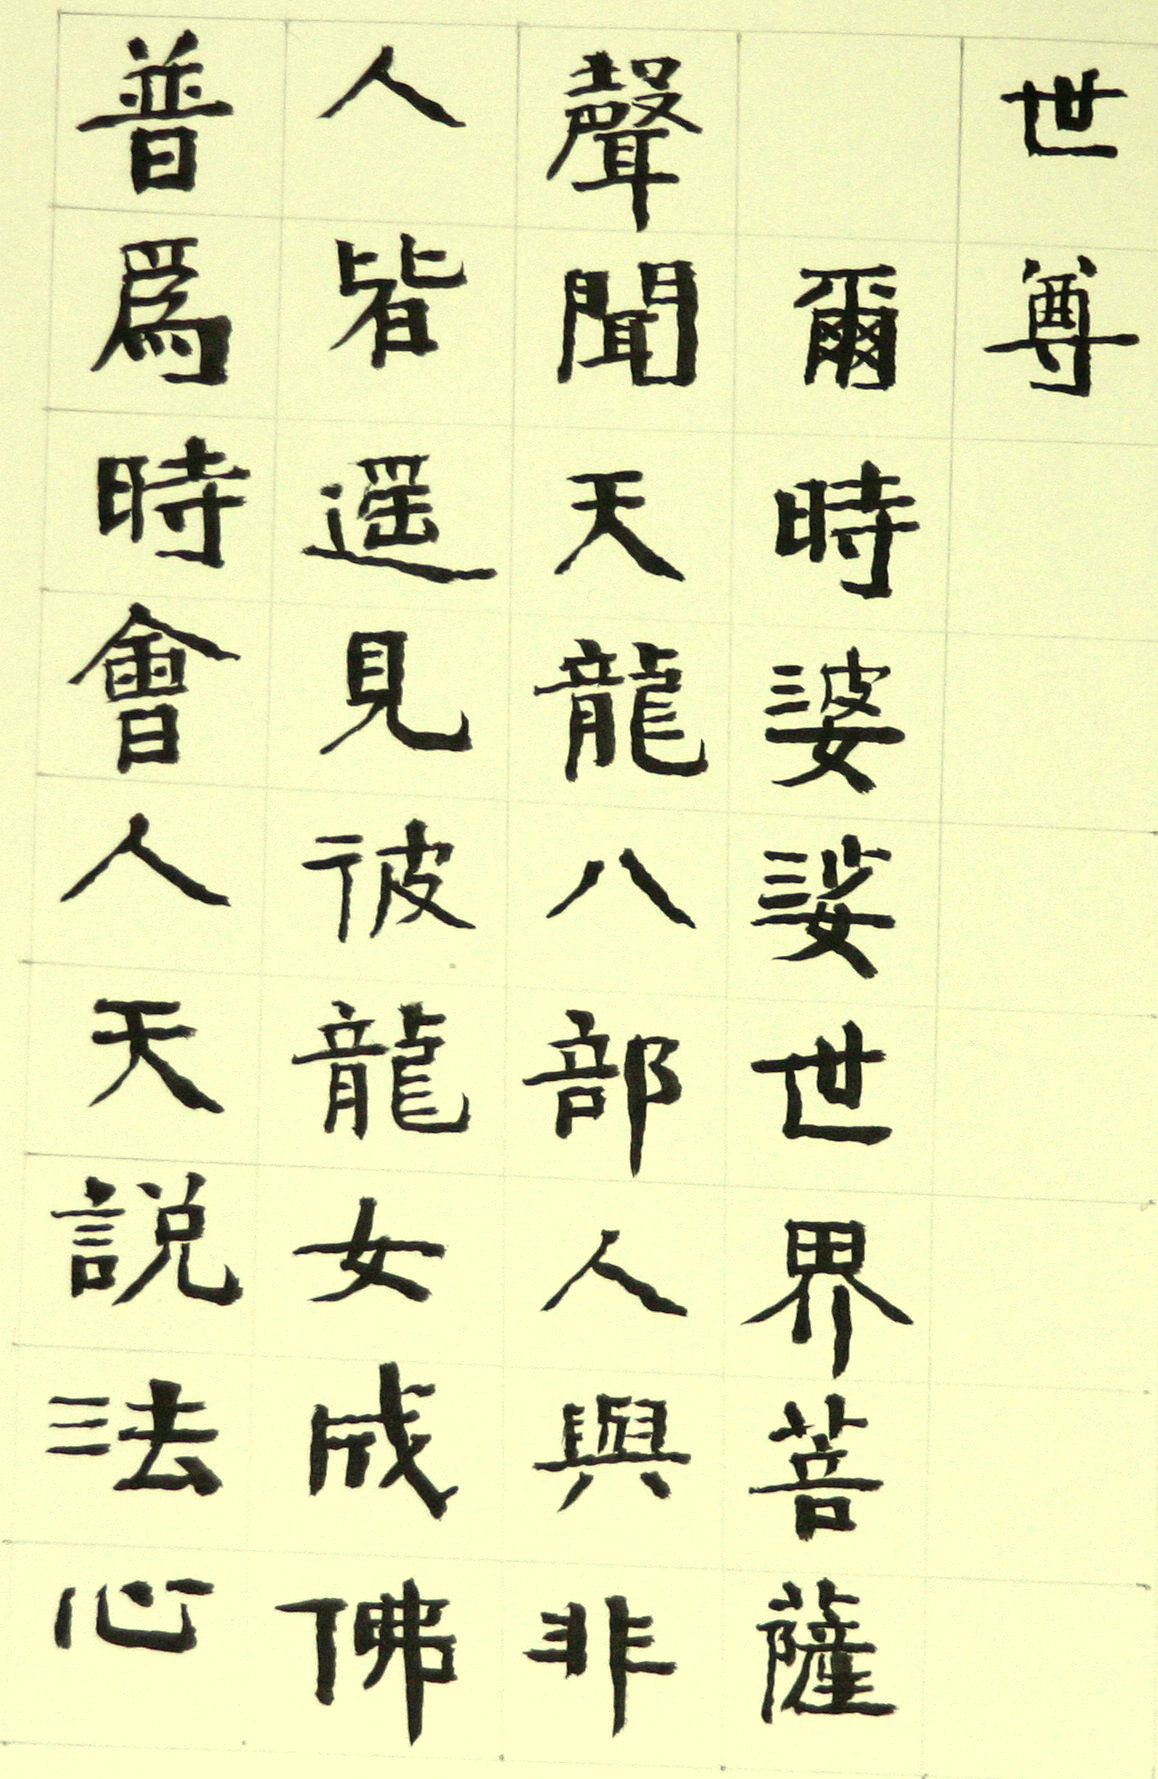 世尊
爾時娑婆世界菩薩
聲聞天龍八部人與非
人皆遥見彼龍女成佛
普爲時會人天説法心